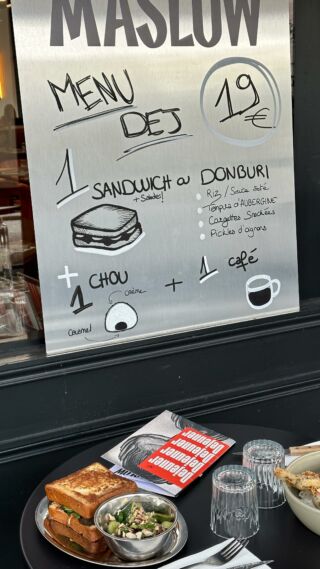 MASLOW
MENU
DEJ
19€
1 SANDWICH ou DONBURI
+ Salades!
Riz / Sauce
Tempura d'AUBERGINE
Courgettes Snackées
Pickles d'oignons
+ 1 CHOU + 1 café
crème
Caramel
Dejeuner
Dejeuner
Dejeuner
Dejeuner